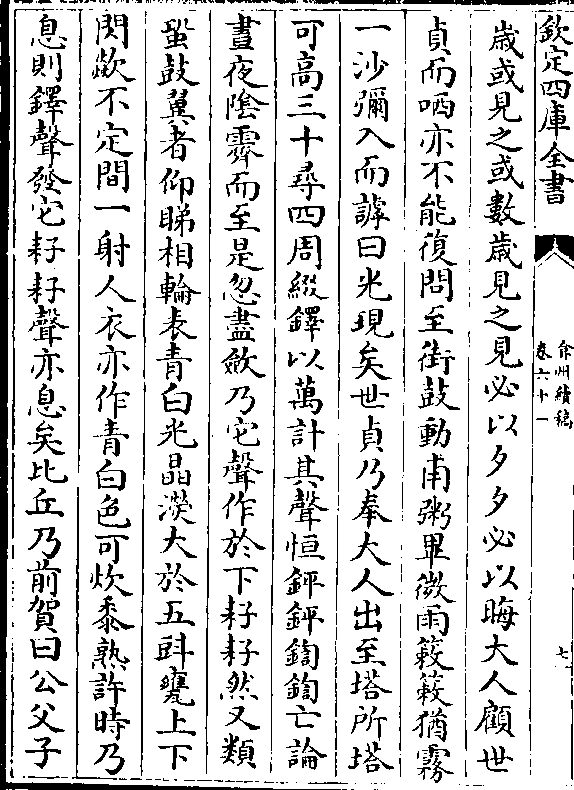 欽定四庫全書
弇州續稿
卷六十一
七
歳或見之或數歳見之見必以夕夕必以晦大人顧世
貞而哂亦不能復問至街鼓動甫粥畢微雨簌簌猶霧
一沙彌入而謼曰光現矣世貞乃奉大人出至塔所塔
可高三十尋四周綴鐸以萬計其聲恒鉀鉀鍧鍧亡論
晝夜陰霽而至是忽盡斂乃它聲作於下耔耔然又類
蛩鼓翼者仰睇相輪表青白光晶瀠大於五斗甕上下
閃歘不定間一射人衣亦作青白色可炊黍熟許時乃
息則鐸聲發它耔耔聲亦息矣比丘乃前賀曰公父子